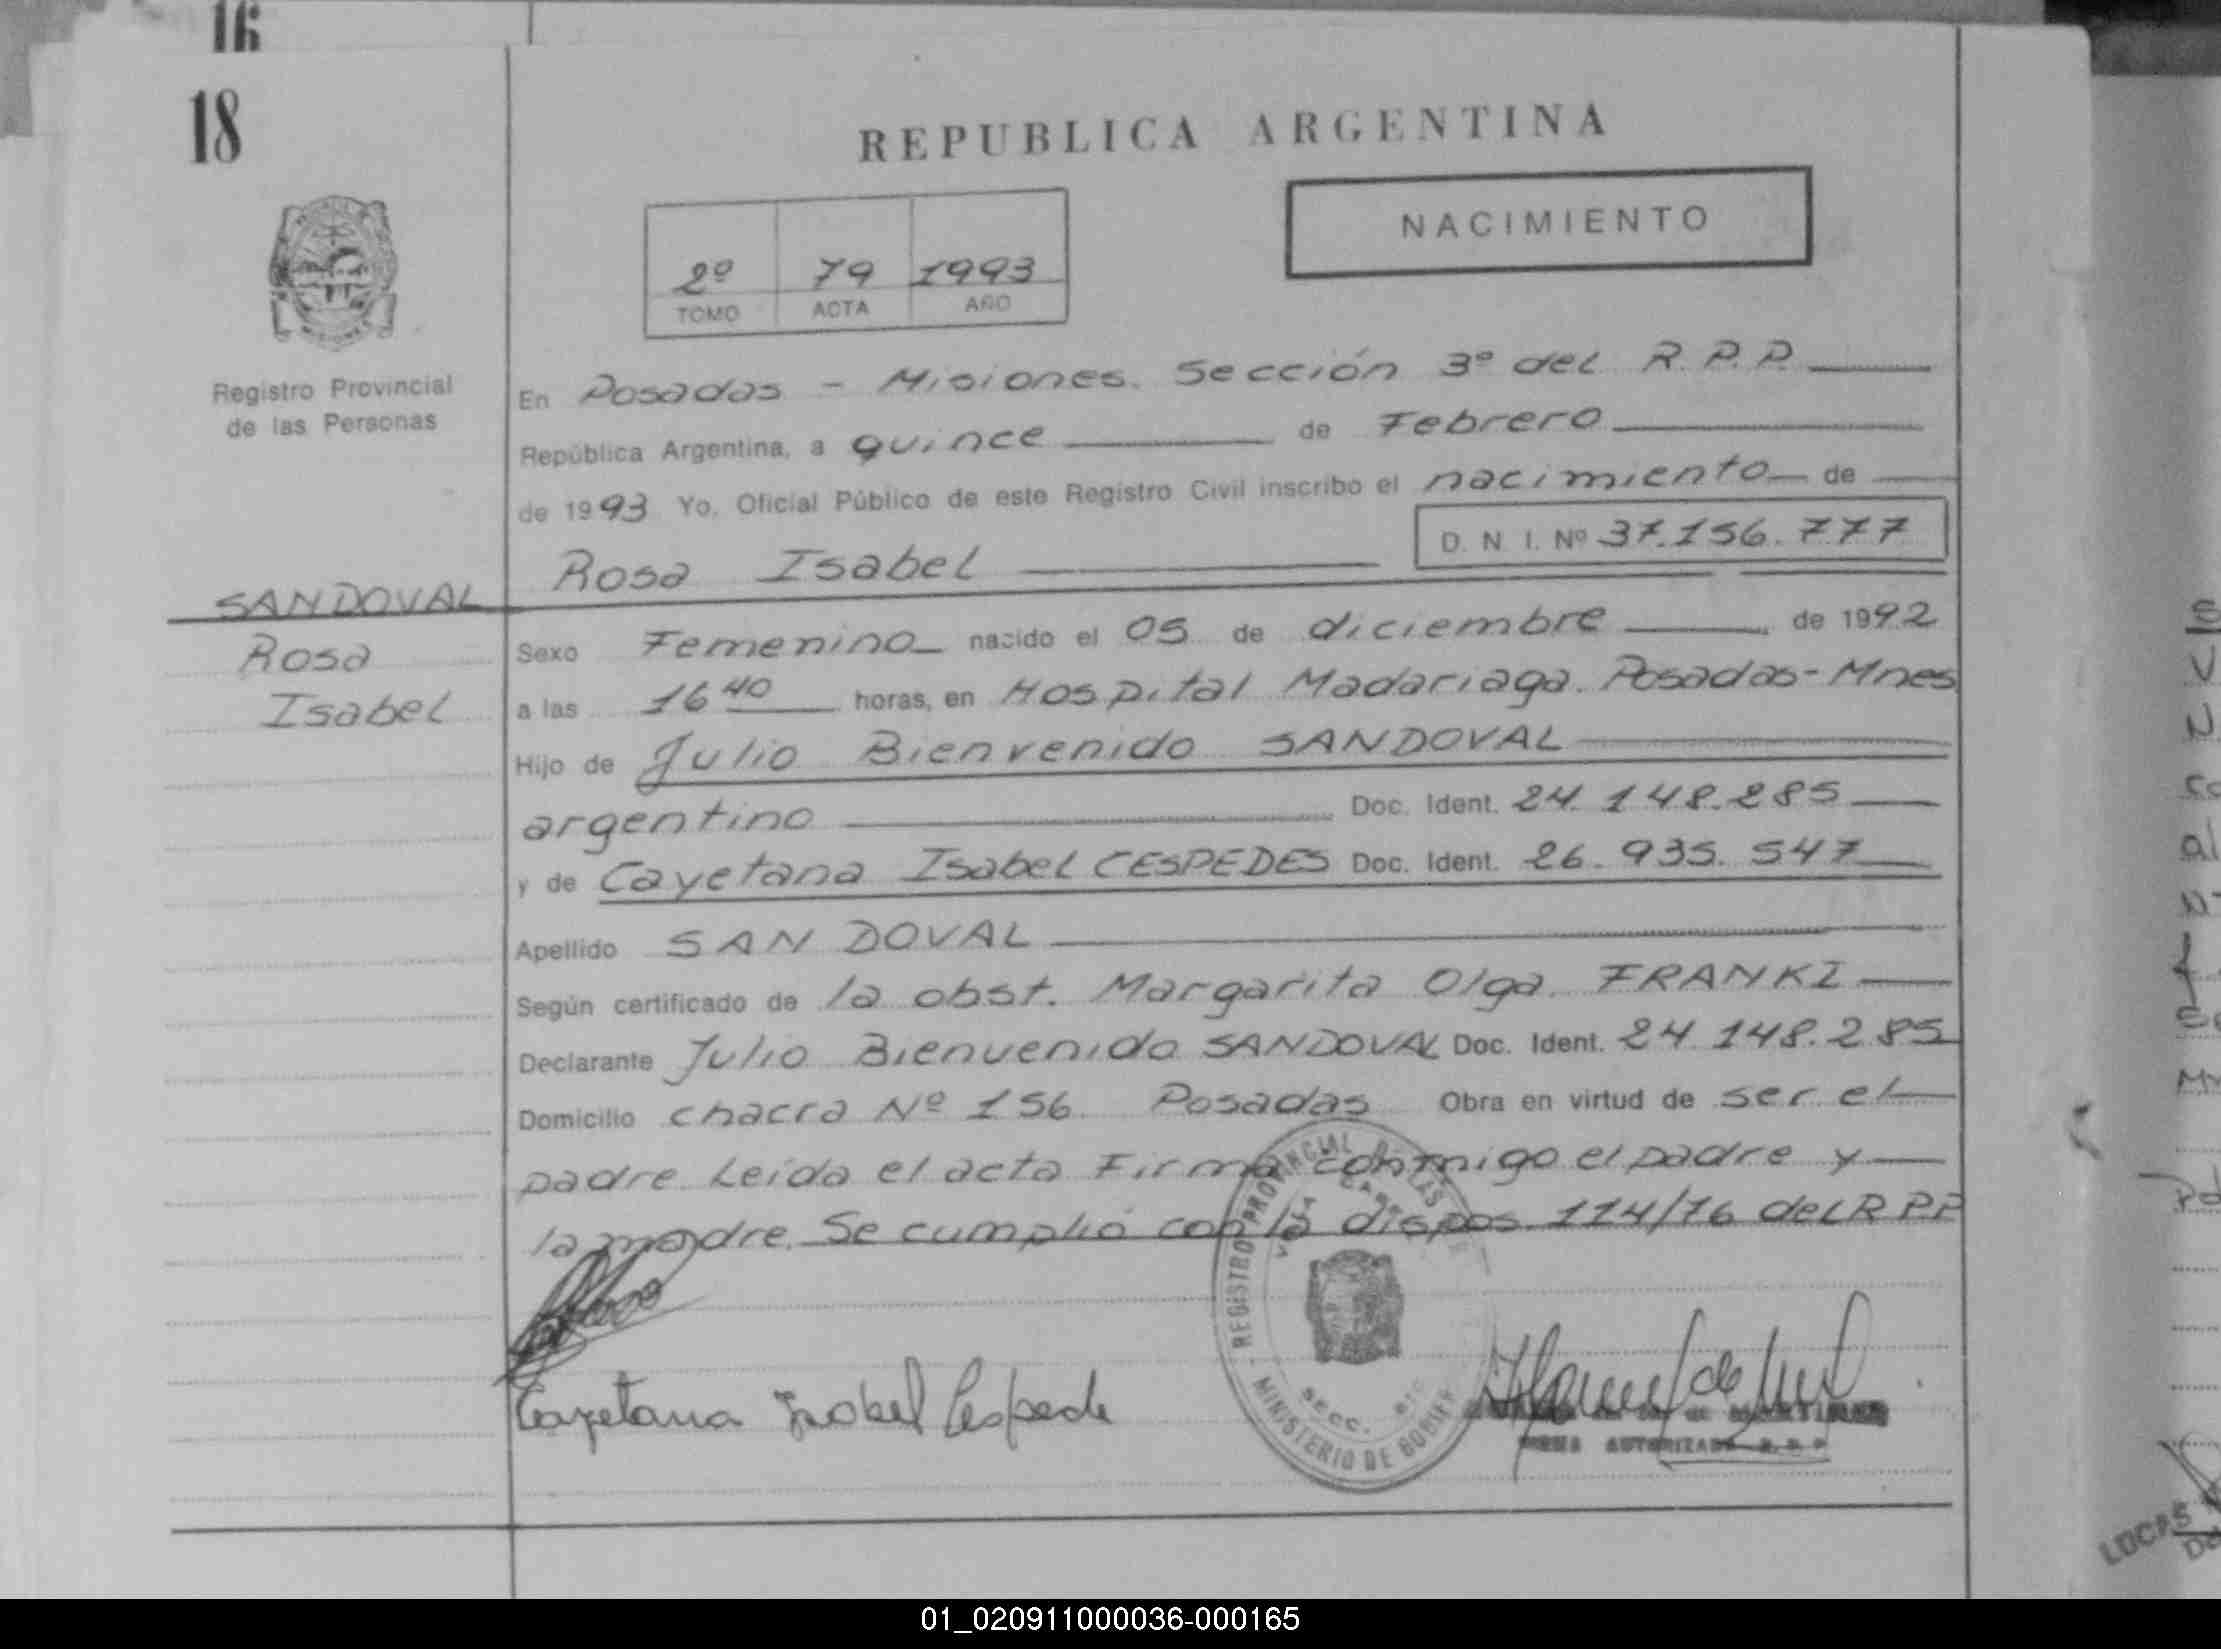 16
18
REPUBLICA ARGENTINA
NACIMIENTO
2º 79 1993
TOMO ACTA AÑO
Registro Provincial
de las Personas
En Posadas - Misiones. Sección 3º del R.P.P.
República Argentina, a quince de Febrero
de 1993 Yo, Oficial Público de este Registro Civil inscribo el nacimiento de
D. N. I. Nº 37.156.777
Rosa Isabel
SANDOVAL
Rosa
Isabel
Sexo Femenino nacido el 05 de diciembre de 1992
a las 16 40 horas, en Hospital Madariaga. Posadas-Mnes
Hijo de Julio Bienvenido SANDOVAL
argentino Doc. Ident. 24.148.285
y de Cayetana Isabel CESPEDES Doc. Ident. 26.935.547
Apellido SANDOVAL
Según certificado de la obst. Margarita Olga FRANKI
Declarante Julio Bienvenido SANDOVAL Doc. Ident. 24.148.285
Domicilio chacra Nº 156 Posadas Obra en virtud de ser el
padre. Leída el acta Firma conmigo el padre y
la madre. Se cumplió con la dispos. 114/76 del R.P.P
REGISTRO PROVINCIAL DE LAS
SECC.
MINISTERIO DE GOBIER
Cayetana Isabel Cespede
FIRMA AUTORIZADA R.P.P
LUCAS
01_020911000036-000165